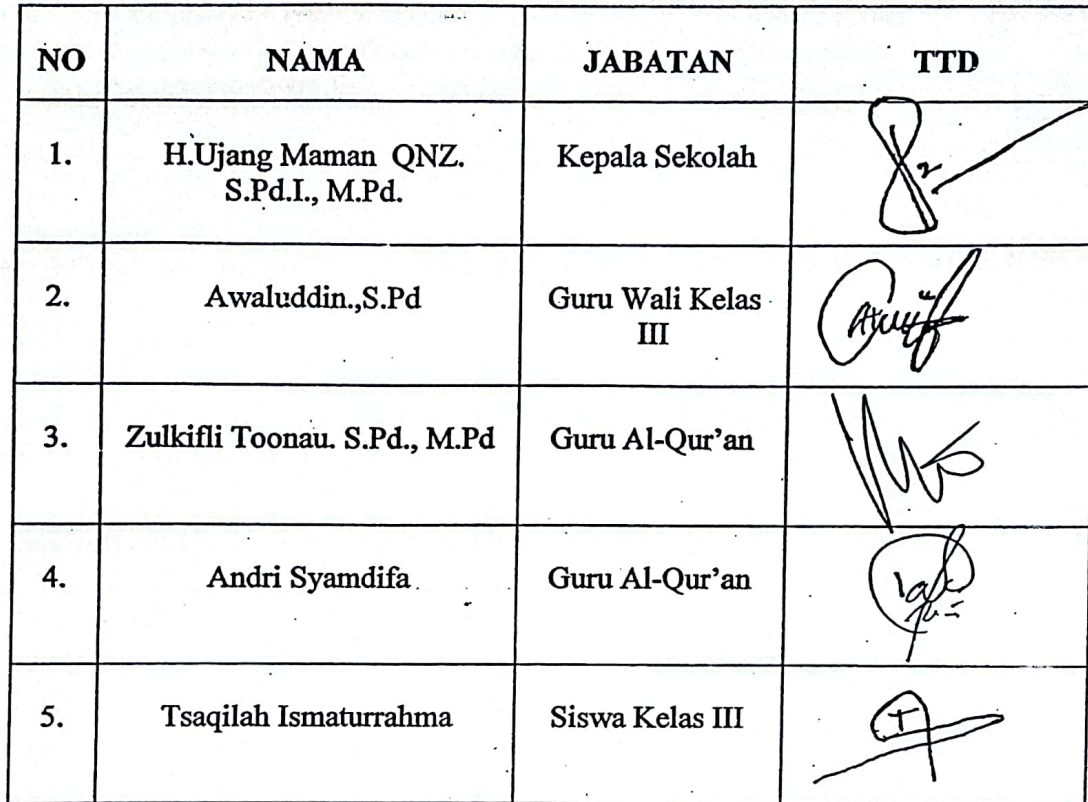 NO NAMA JABATAN TTD
1. H.Ujang Maman QNZ. Kepala Sekolah
S.Pd.I., M.Pd.
2. Awaluddin.,S.Pd Guru Wali Kelas
III
3. Zulkifli Toonau. S.Pd., M.Pd Guru Al-Qur’an
4. Andri Syamdifa Guru Al-Qur’an
5. Tsaqilah Ismaturrahma Siswa Kelas III